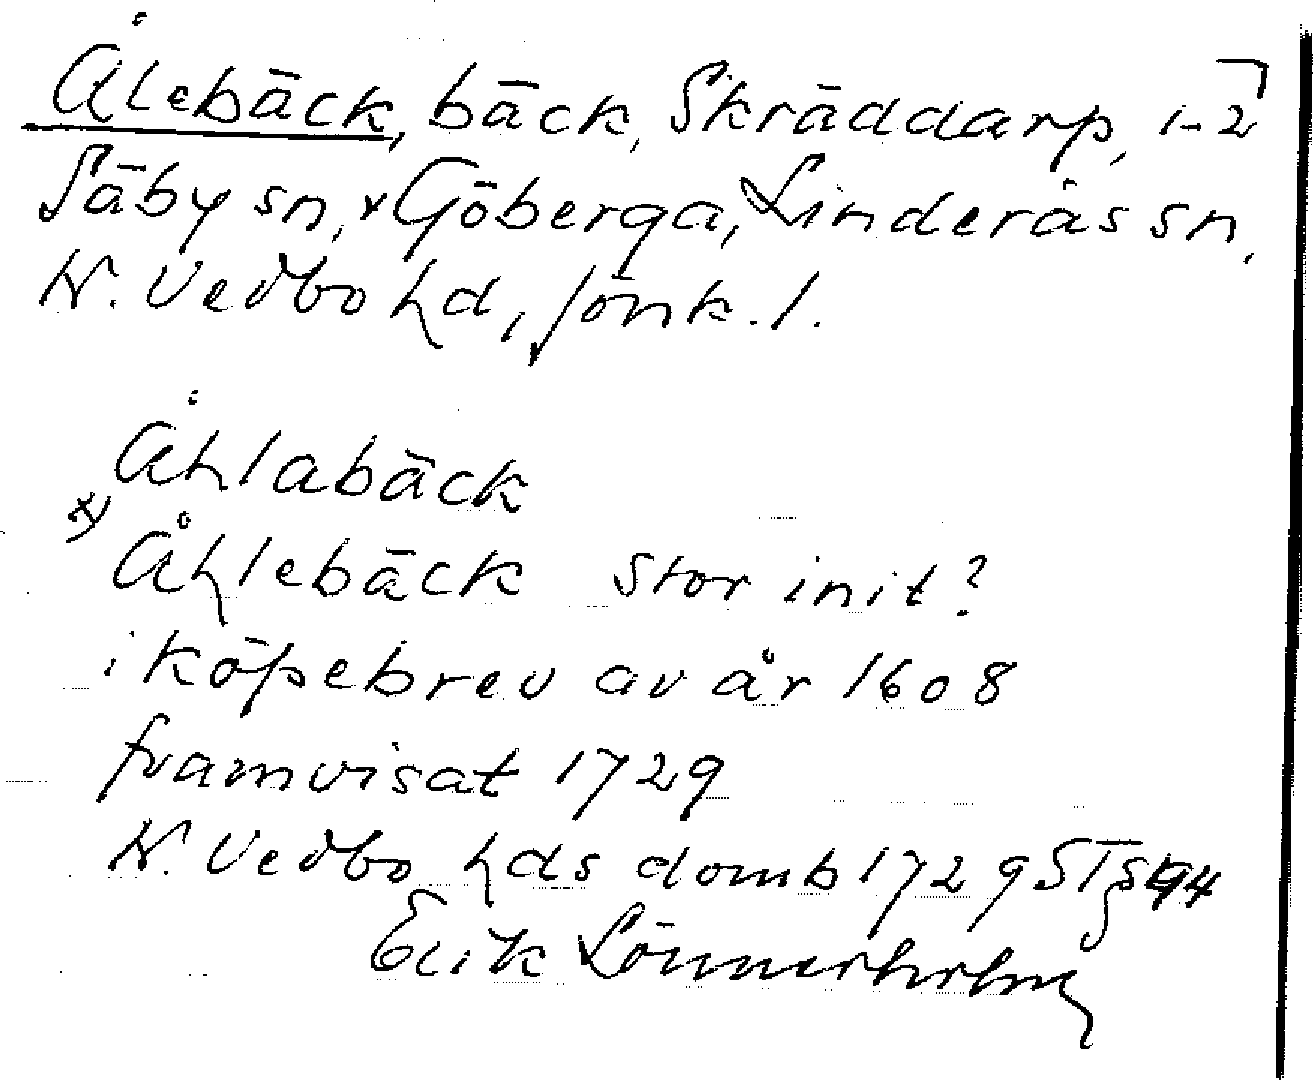 Ålebäck, bäck, Skräddarp, 1-2
Säby sn, x Göberga, Linderås sn,
N. Vedbo hd, Jönk. l.
Åhlabäck
x) Åhlebäck stor init?
i köpebrev av år 1608
framvisat 1729
N. Vedbo hds domb 1729 ST §
Erik Lönnerholm